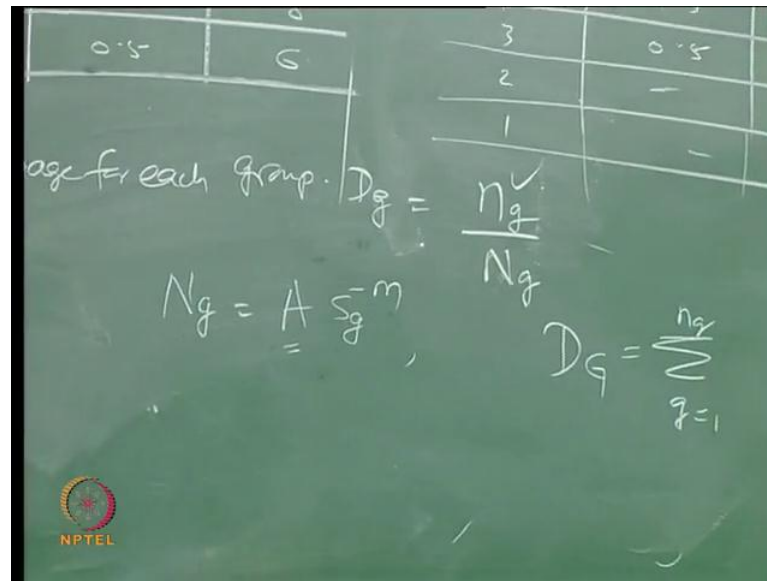 0.5 6
3 0.5
2 -
1 -
for each group. D_g = n_g / N_g ✓
N_g = A S_g^-m ,
D_G = Σ_{g=1}^{n_g}
NPTEL